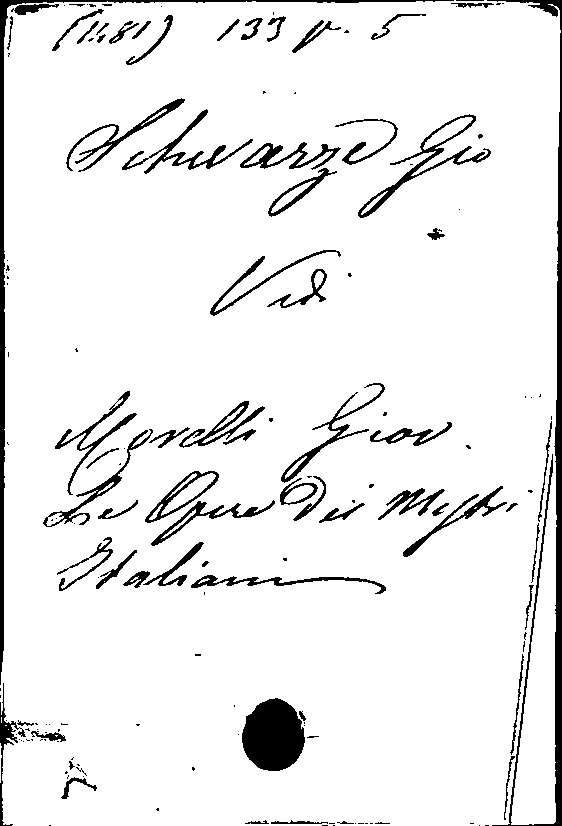 (1481) 133 p. 5
Schwarze Gio
Vedi
Morelli Giov.
Le Opere dei Mestri
Italiani